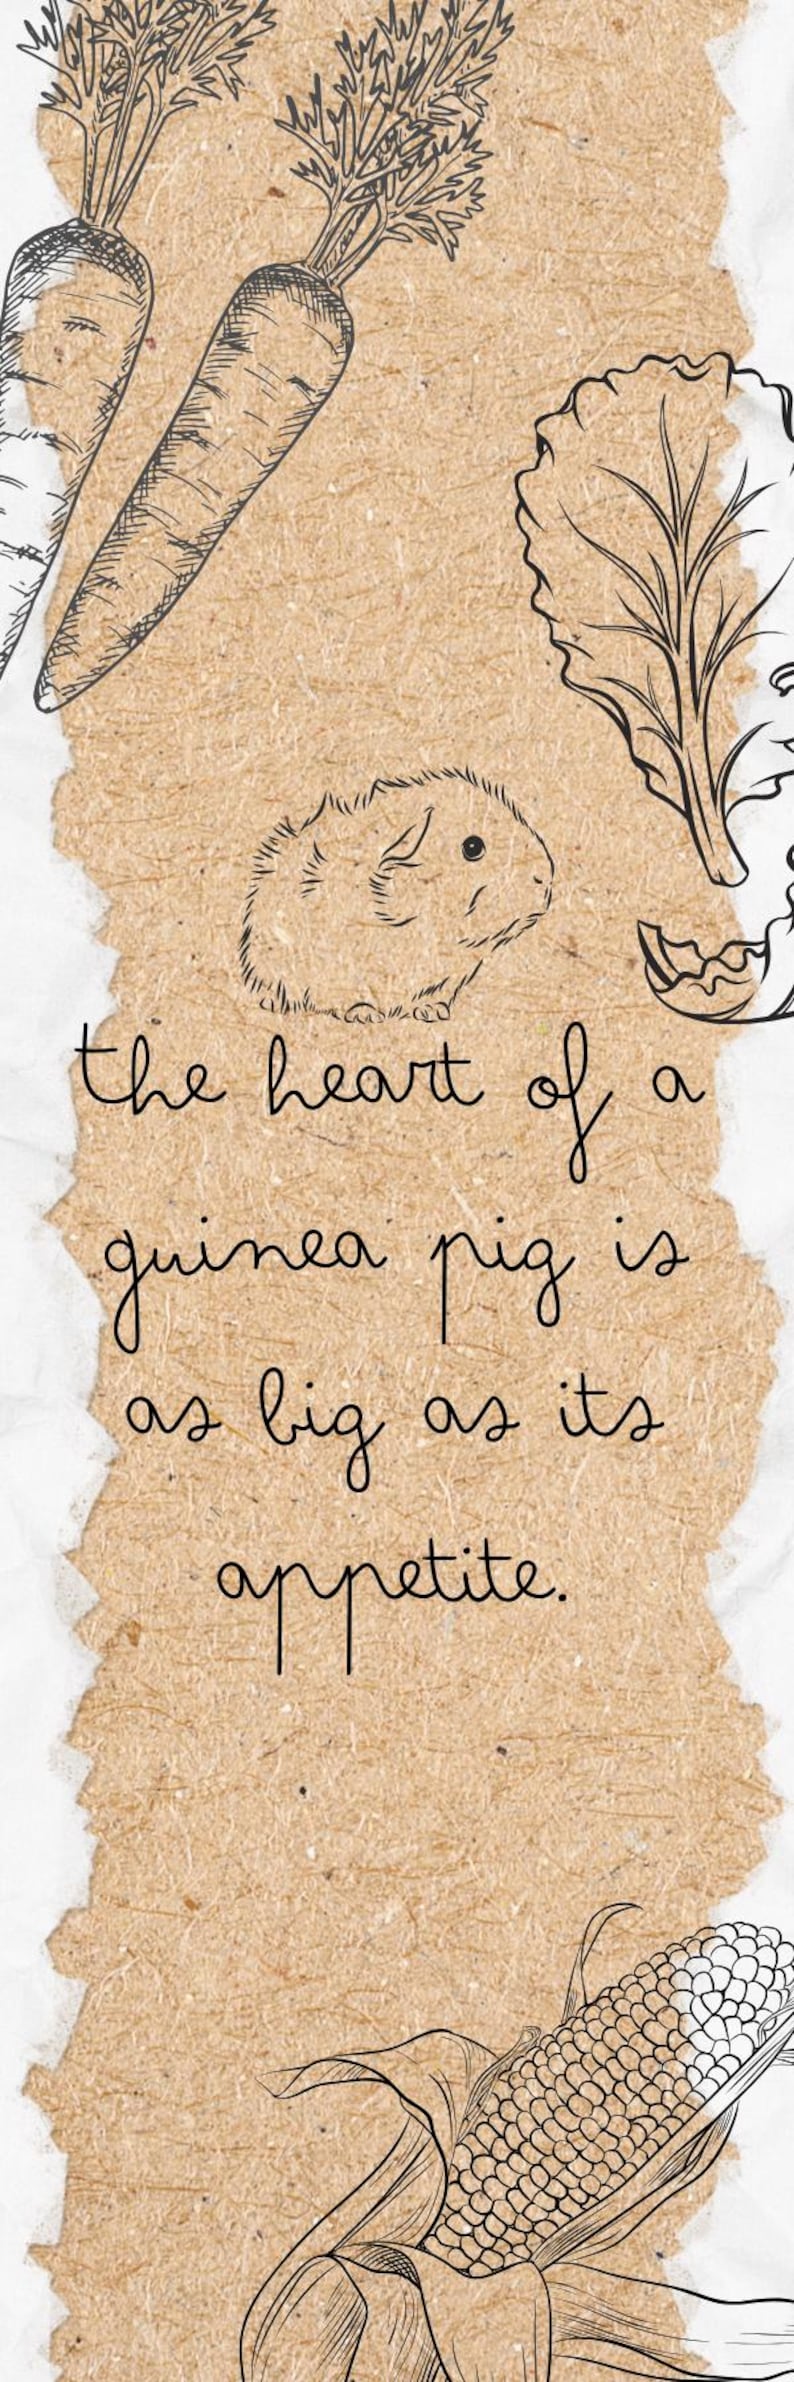 the heart of a
guinea pig is
as big as its
appetite.